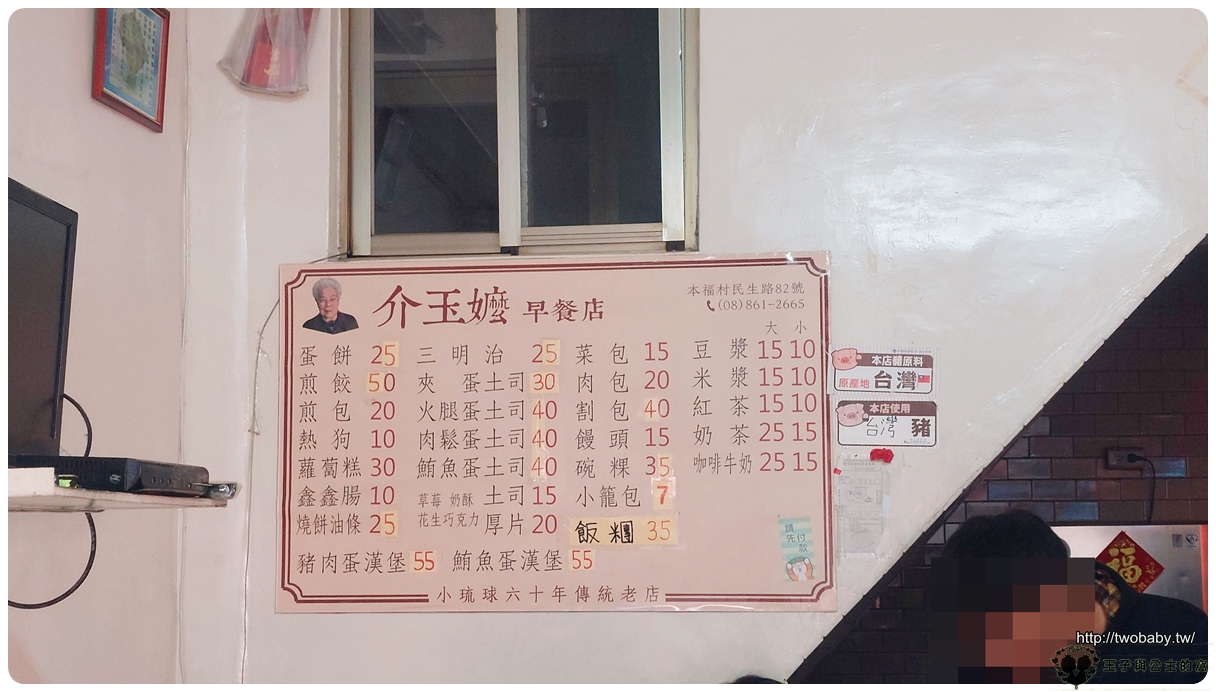 介玉嬤 早餐店
本福村民生路82號
(08)861-2665
大 小
蛋餅 25 三明治 25 菜包 15 豆漿 15 10
煎餃 50 夾蛋土司 30 肉包 20 米漿 15 10
煎包 20 火腿蛋土司 40 割包 40 紅茶 15 10
熱狗 10 肉鬆蛋土司 40 饅頭 15 奶茶 25 15
蘿蔔糕 30 鮪魚蛋土司 40 碗粿 35 咖啡牛奶 25 15
鑫鑫腸 10 草莓 奶酥 土司 15 小籠包 7
燒餅油條 25 花生巧克力 厚片 20 飯糰 35
豬肉蛋漢堡 55 鮪魚蛋漢堡 55
請先付款
小琉球六十年傳統老店
本店豬原料
原產地 台灣
本店使用
台灣 豬
福
http://twobaby.tw/
王子與公主的窩